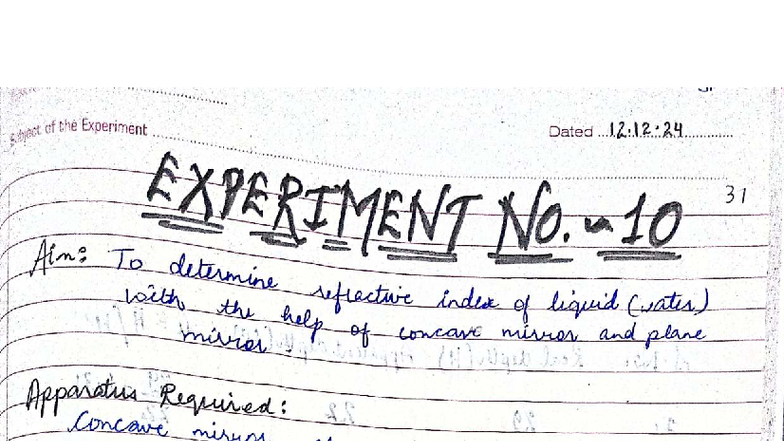 Subject of the Experiment
Dated 12.12.24
31
EXPERIMENT No. - 10
Aim: To determine refractive index of liquid (water)
with the help of concave mirror and plane
mirror
Apparatus Required:
Concave mirror